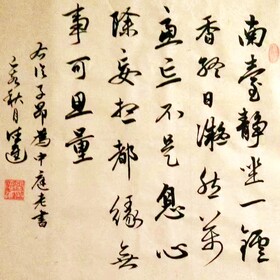 南臺靜坐一鑪
香終日凝然萬
慮忘不是息心
除妄想都緣無
事可思量
右臨子昂為中庭老書
亥秋月